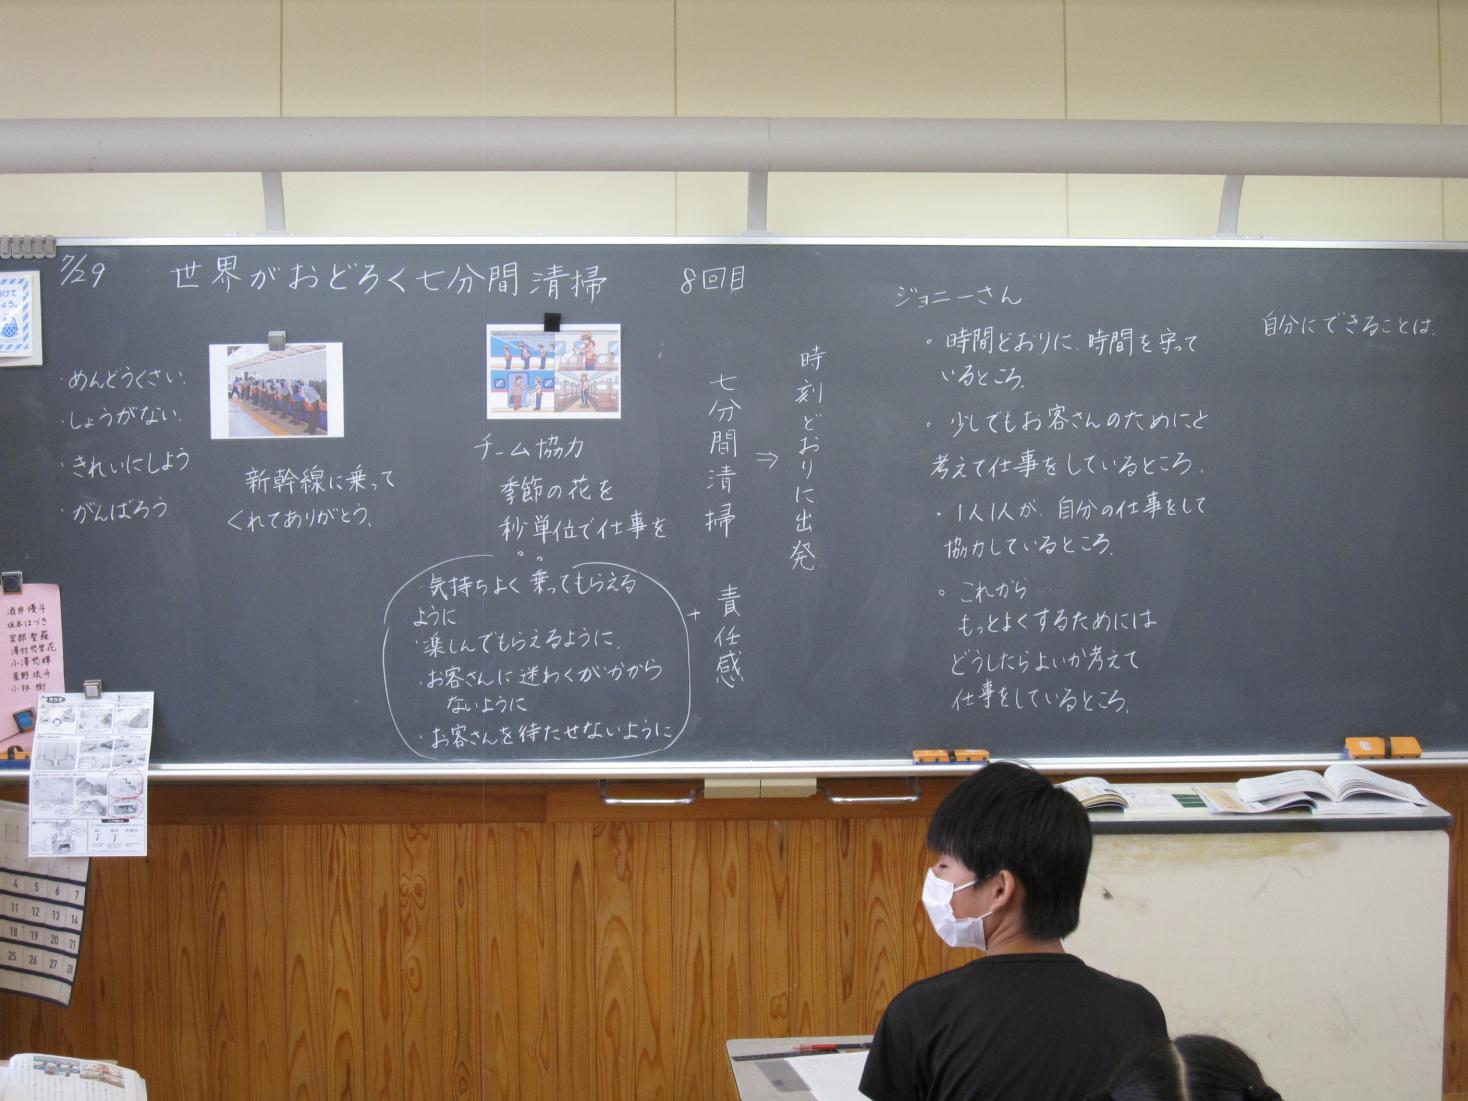 7/29
世界がおどろく七分間清掃
8回目
・めんどうくさい.
・しょうがない.
・きれいにしよう
・がんばろう
新幹線に乗って
くれてありがとう、
チーム協力
季節の花を
秒単位で仕事を
・気持ちよく乗ってもらえる
ように
・楽しんでもらえるように.
・お客さんに迷わくがかから
ないように
・お客さんを待たせないように
七分間清掃
+
責任感
⇒
時刻どおりに出発
ジョニーさん
。時間どおりに、時間を守って
いるところ。
。少しでもお客さんのためにと
考えて仕事をしているところ.
・1人1人が、自分の仕事をして
協力しているところ。
。これから…
もっとよくするためには
どうしたらよいか考えて
仕事をしているところ。
自分にできることは、
4 5 6 7
11 12 13 14
18 19 20 21
25 26 27 28